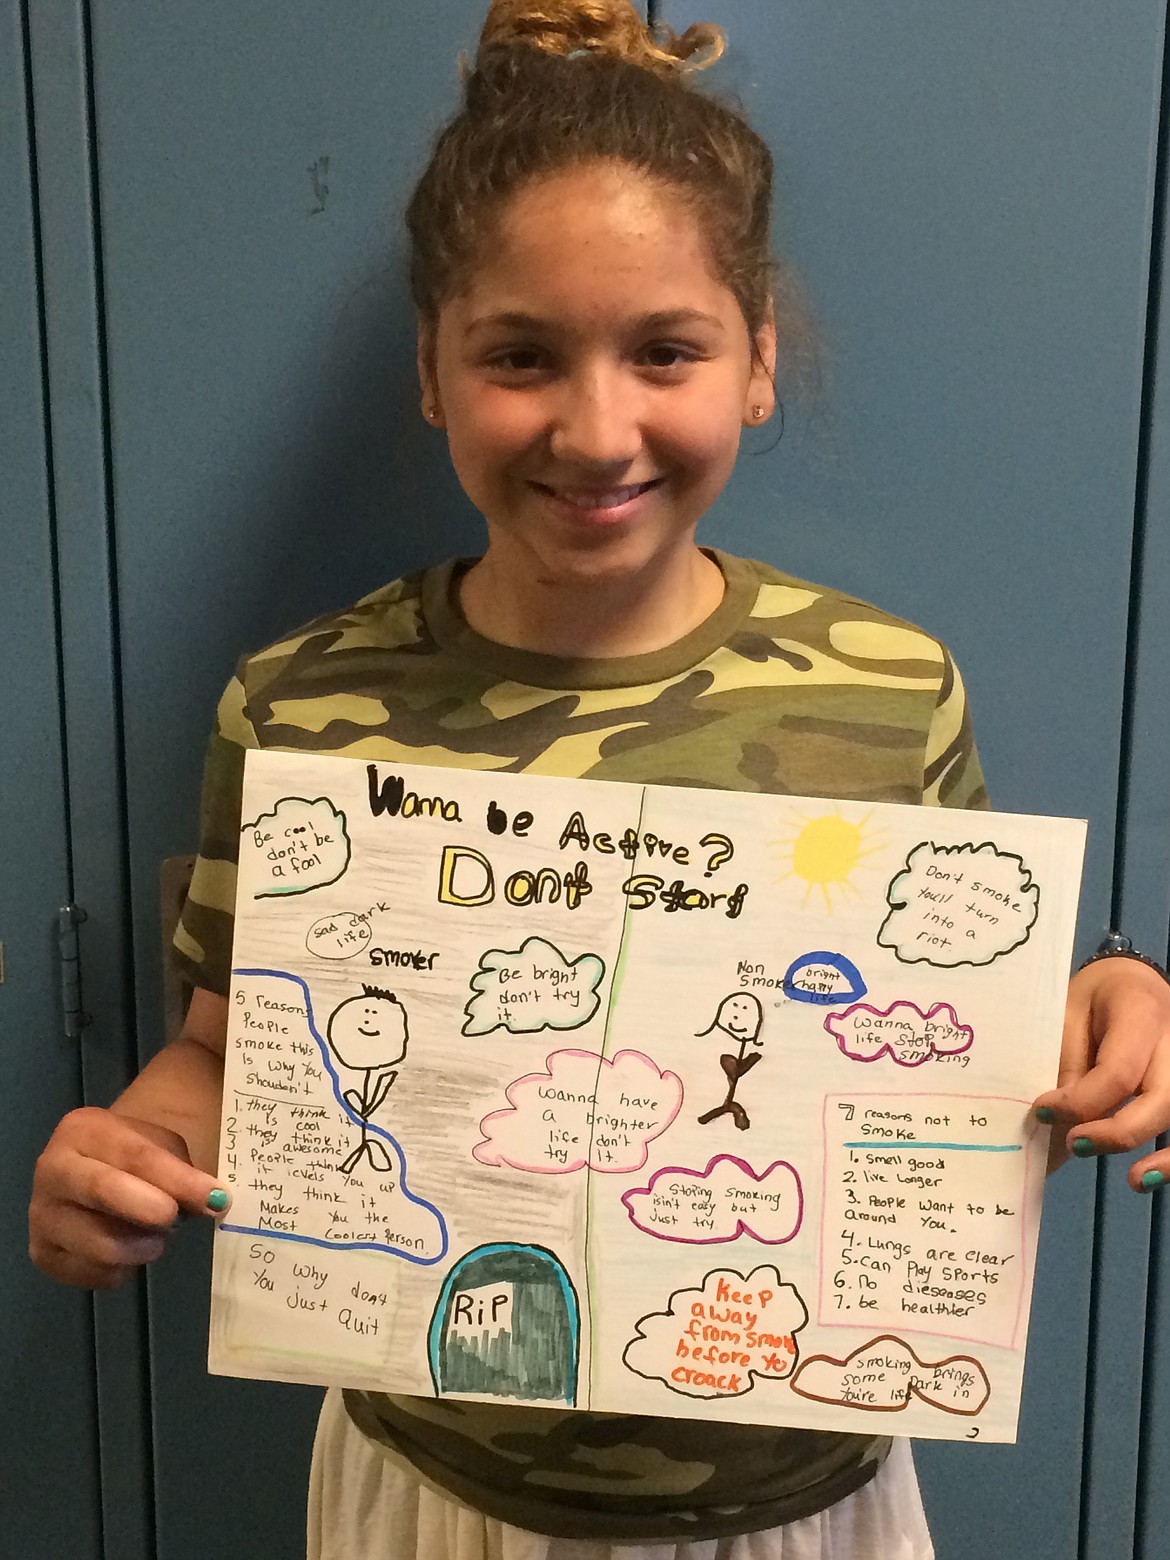 Wanna be Active?
Dont Start
Be cool
don't be
a fool
sad dark
life
smoker
Be bright
don't try
it.
5 reasons
People
smoke this
Is why You
shouldn't
1. they think it
Is cool
2. they think it
3 is awesome
4. People think
it levels You up
5. they think it
Makes You the
Most Coolest Person.
So why dont
You just Quit
RiP
Wanna have
a brighter
life don't
try It.
Don't smoke
You'll turn
into a
riot
Non
Smoker
bright
happy
life
Wanna bright
life stop
smoking
Stoping smoking
isin't easy but
just try.
7 reasons not to
Smoke
1. Smell good
2. live longer
3. People want to be
around You.
4. Lungs are clear
5. Can Play Sports
6. no dieseases
7. be healthier
Keep
away
from smoke
before yo
croack
smoking brings
some Dark in
You're life